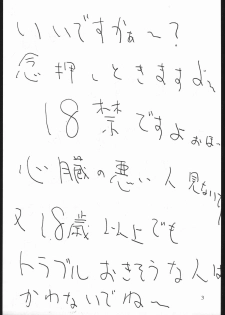 いいですかぁ～?
念押しときますよ〜
18禁ですよ おほー
心臓の悪い人 見ないで!
又 18歳以上でも
トラブルおきそうな人は
かわないでね～
3